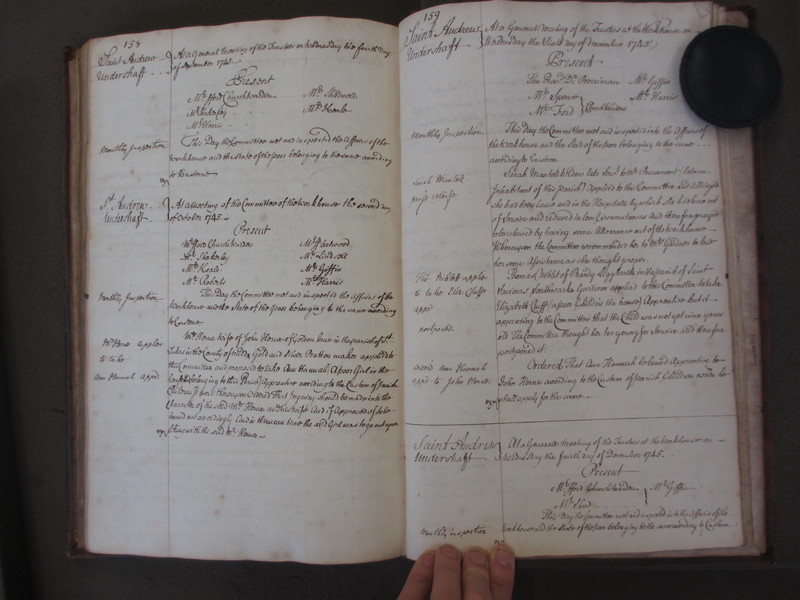 158
Saint Andrew
Undershaft
At a General Meeting of the Trustees on Wednesday the fourth day
of September 1745.
Present
Mr Ford Churchwarden Mr
Mr Mr Keale
Mr Harris
Monthly Inspection
This Day the Committee met and inspected the Affairs of the
Workhouse and the State of the poor belonging to the same according
to Custom
St Andrew
Undershaft
At a Meeting of the Committee of the Workhouse the second day
of October 1745.
Present
Mr Ford Churchwarden Mr
Mr Mr
Mr Keale Mr Griffin
Mr Roberts Mr Harris
Monthly Inspection
This Day the Committee met and inspected the Affairs of the
Workhouse and the State of the poor belonging to the same according
to Custom
Mrs Horne applies
to take
Ann Hannah apprd
Mrs Horne Wife of John Horne of Golden Lane in the parish of St
Lukes in the County of Middx Gold and Silver Button maker applied to
the Committee and proposed to take Ann Hannah a poor Girl in the
house belonging to this parish Apprentice according to the Custom of parish
Children Whereupon Ordered That Inquiry should be made into the
Character of the said Mr Horne and his Wife And if Approved of to be
bound out accordingly And in the mean time the said Girl was to go out upon
liking with the said Mr Horne
159
Saint Andrew
Undershaft
At a General Meeting of the Trustees at the Workhouse on
Wednesday the Sixth day of November 1745.
Present
The Revd Dr Berriman Mr Griffin
Mr Spooner Mr Harris
Mr Ford
Monthly Inspection
This Day the Committee met and inspected into the Affairs of
the Workhouse and the State of the poor belonging to the same
according to Custom
Sarah
prays relief
Sarah late Servt to Mr (a late
Inhabitant of this parish) applied to this Committee and alledged
she had been and in the Hospital by which she had been out
of Service and reduced to low Circumstances and therefore prayed
to be relieved by having some Allowance out of the Workhouse
Whereupon the Committee recommended her to Mr to lend
her some Assistance as she thought proper.
Tho: Niblet applies
to take Eliz: Cluff
apprd
postponed.
Thomas Niblet of in the parish of Saint
Saviours Southwarke Gardiner applied to this Committee to take
Elizabeth Cluff (a poor Child in the house) Apprentice but it
appearing to the Committee that the Child was not yet nine years
old The Committee thought her too young for Service and therefore
postponed it.
Ann Hannah
apprd to John Horne
Ordered That Ann Hannah be bound Apprentice to
John Horne according to the Custom of parish Children when he
shall apply for the same
Saint Andrew
Undershaft
At a General Meeting of the Trustees at the Workhouse on
Wednesday the fourth day of December 1745.
Present
Mr Ford Churchwarden Mr Griffin
Mr
Monthly Inspection
This Day the Committee met and inspected into the Affairs of the
Workhouse and the State of the poor belonging to the same according to Custom